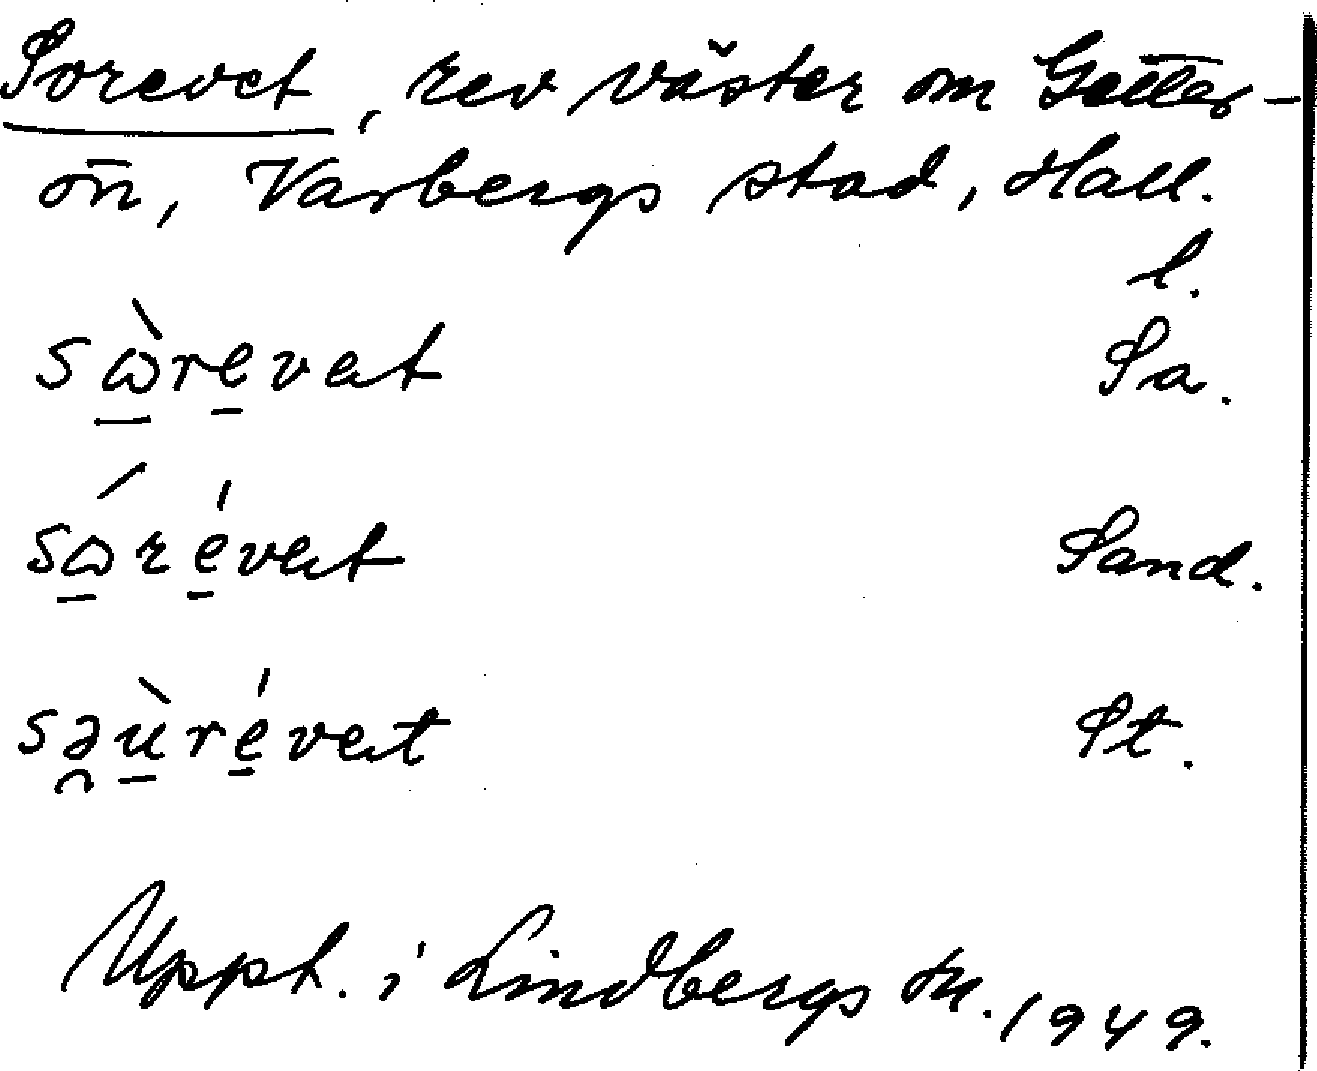 Sorevet, rev väster om Getter-
ön, Varbergs stad, Hall.
l.
sὼ̲re̲vet Sa.
sώ̲ré̲vet Sand.
sə̯ù̲ré̲vet St.
Uppt. i Lindbergs sn. 1949.